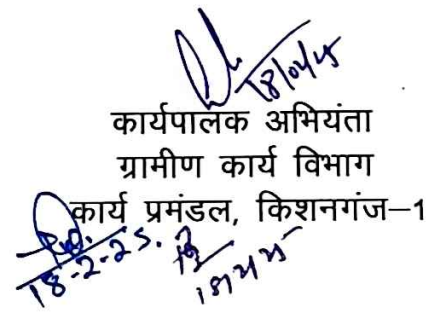 18/02/25
कार्यपालक अभियंता
ग्रामीण कार्य विभाग
कार्य प्रमंडल, किशनगंज–1
18-2-25.